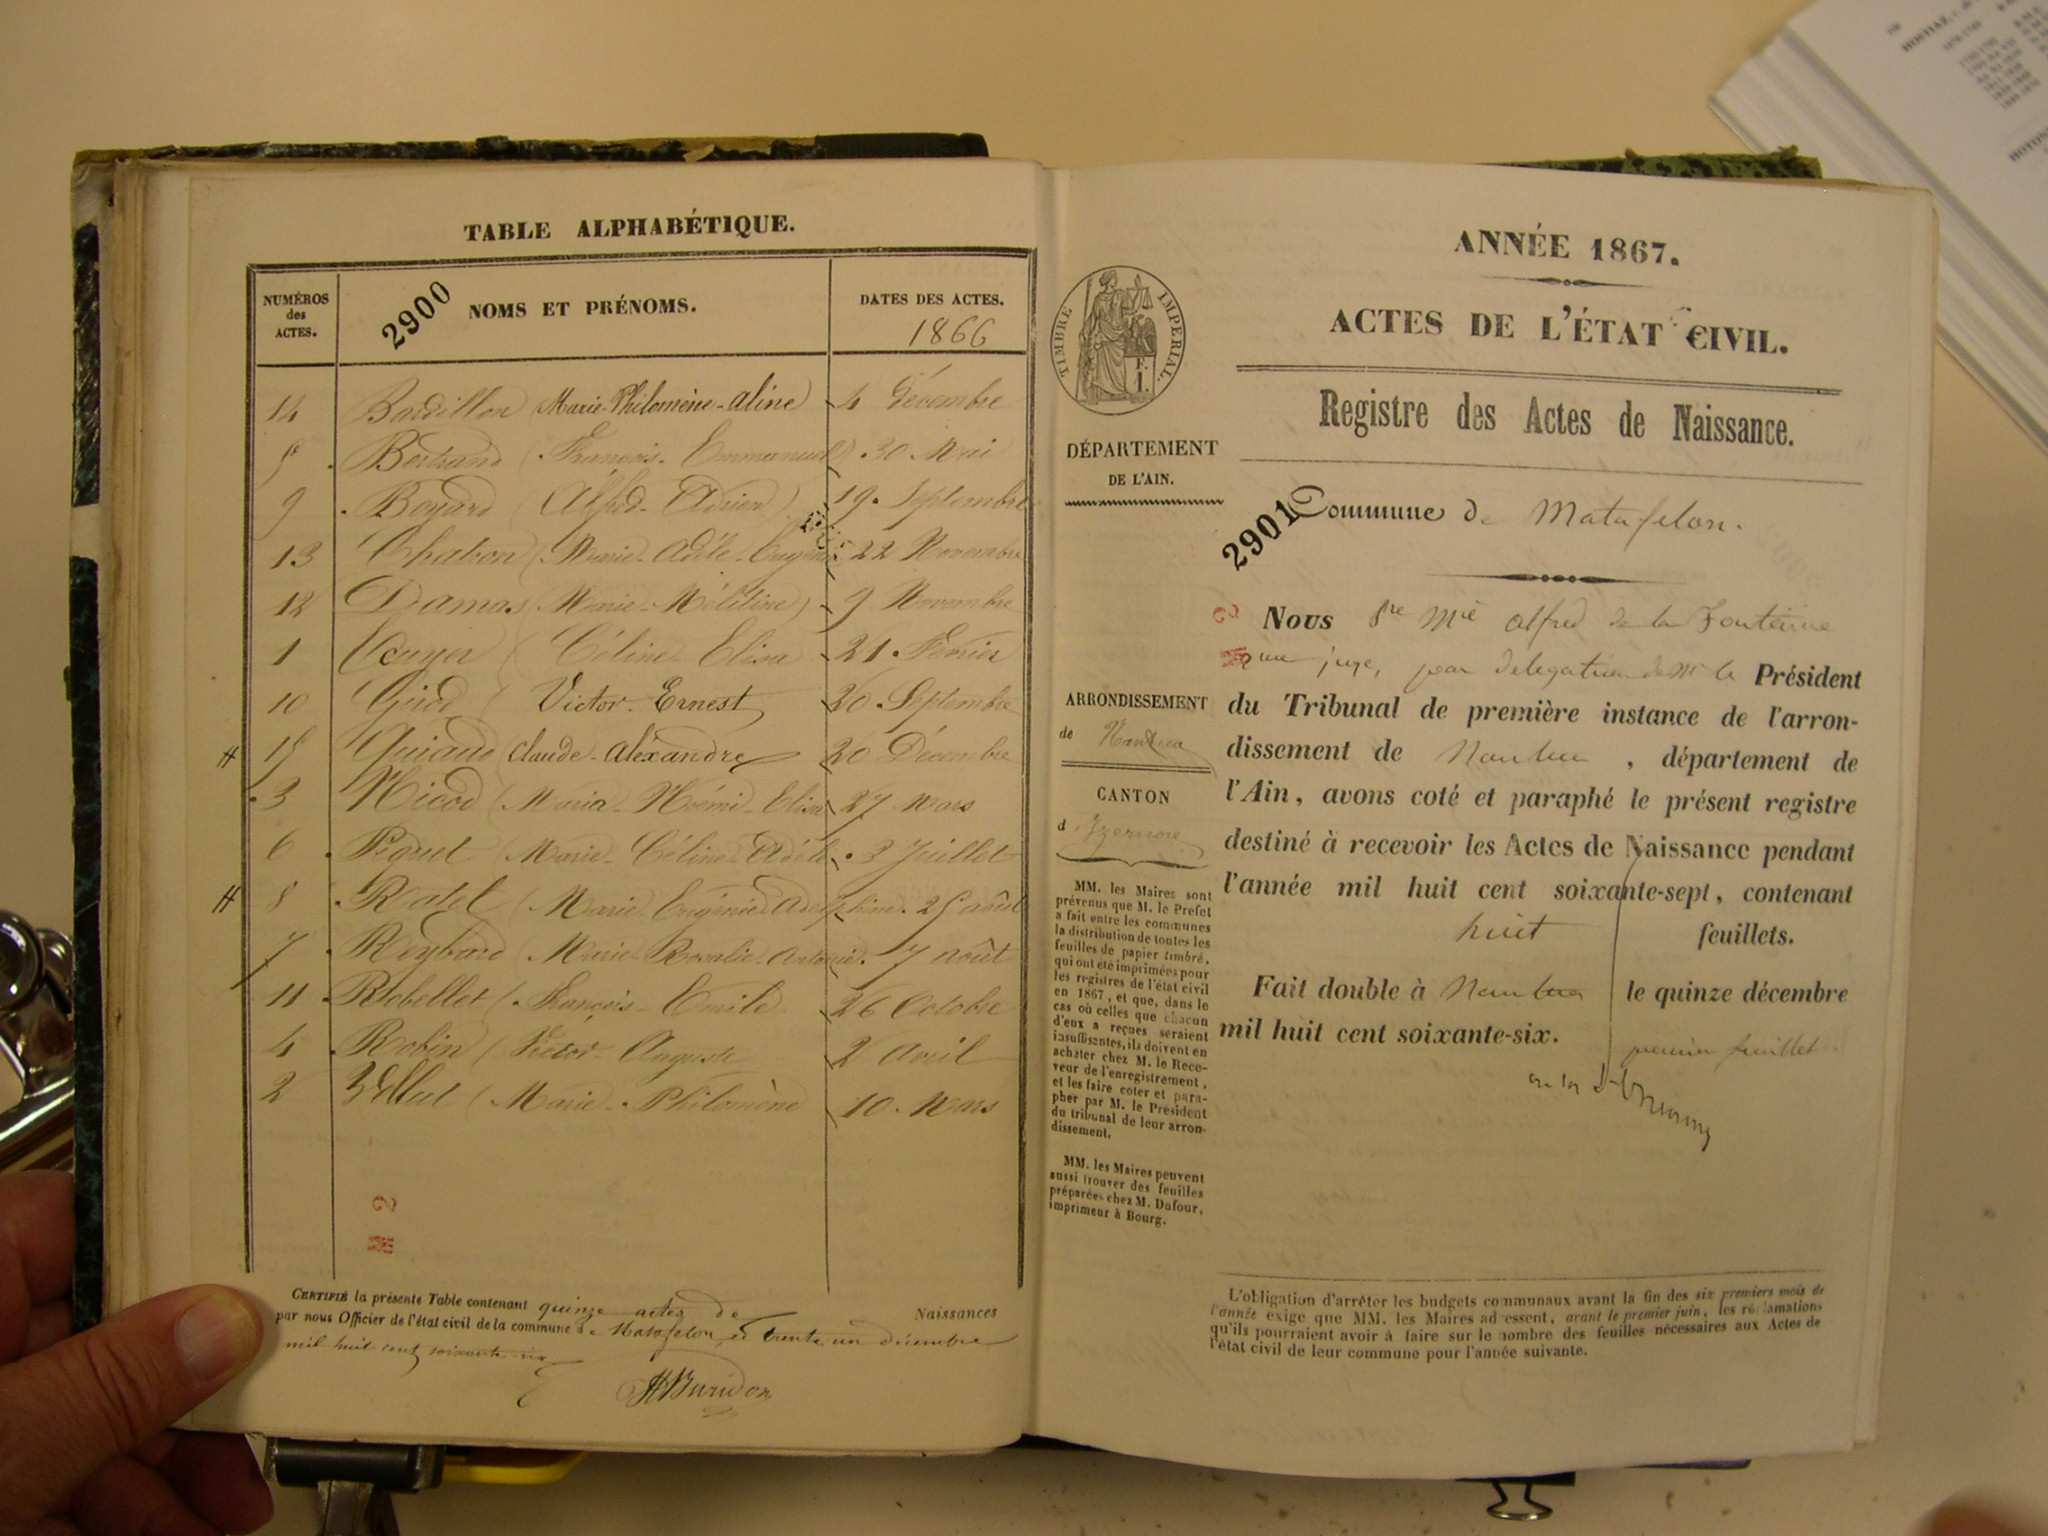 TABLE ALPHABÉTIQUE.
NUMÉROS des ACTES.
2900
NOMS ET PRÉNOMS.
DATES DES ACTES.
1866
14 Bardillon (Marie-Philomène-Aline) 4 Décembre
5 Bertrand (François-Emmanuel) 30 Mai
9 Boyard (Alfred-Adrien) 19 Septembre
13 Chatron (Marie-Adèle-Eugénie 22 Novembre
12 Damas (Marie-Mélitine) 9 Novembre
1 (Céline-Elisa 21 Fevrier
10 Girod (Victor-Ernest 20 Septembre
15 (Claude-Alexandre 20 Décembre
3 Nicod (Maria-Noémi-Elisa 27 Mars
6 (Marie-Céline-Adèle 3 Juillet
8 Ratel (Marie-Eugénie-Adelphine 25 août
7 Reybard (Marie-Rosalie-Antonie 7 août
11 Robellet (François-Emile 26 Octobre
4 Robin (Victor-Auguste 2 Avril
2 (Marie-Philomène 10 Mars
CERTIFIÉ la présente Table contenant quinze actes de Naissances
par nous Officier de l'état civil de la commune de Matafelon, le trente un décembre
mil huit cent soixante six
Buridon
ANNÉE 1867.
ACTES DE L'ÉTAT CIVIL.
Registre des Actes de Naissance.
TIMBRE IMPERIAL.
DÉPARTEMENT
DE L'AIN.
2901
Commune de Matafelon.
Nous Alfred de la
juge, par délégation de Mr le Président
du Tribunal de première instance de l'arron-
dissement de Nantua, département de
l'Ain, avons coté et paraphé le présent registre
destiné à recevoir les Actes de Naissance pendant
l'année mil huit cent soixante-sept, contenant
huit feuillets.
Fait double à Nantua le quinze décembre
mil huit cent soixante-six.
premier feuillet
ARRONDISSEMENT
de Nantua
CANTON
d'Izernore
MM. les Maires sont
prévenus que M. le Préfet
a fait entre les communes
la distribution de toutes les
feuilles de papier timbré,
qui ont été imprimées pour
les registres de l'état civil
en 1867, et que, dans le
cas où celles que chacun
d'eux a reçues seraient
insuffisantes, ils doivent en
acheter chez M. le Rece-
veur de l'enregistrement,
et les faire coter et para-
pher par M. le Président
du tribunal de leur arron-
dissement.
MM. les Maires peuvent
aussi trouver des feuilles
préparées chez M. Dufour,
imprimeur à Bourg.
L'obligation d'arrêter les budgets communaux avant la fin des six premiers mois de
l'année exige que MM. les Maires adressent, avant le premier juin, les réclamations
qu'ils pourraient avoir à faire sur le nombre des feuilles nécessaires aux Actes de
l'état civil de leur commune pour l'année suivante.